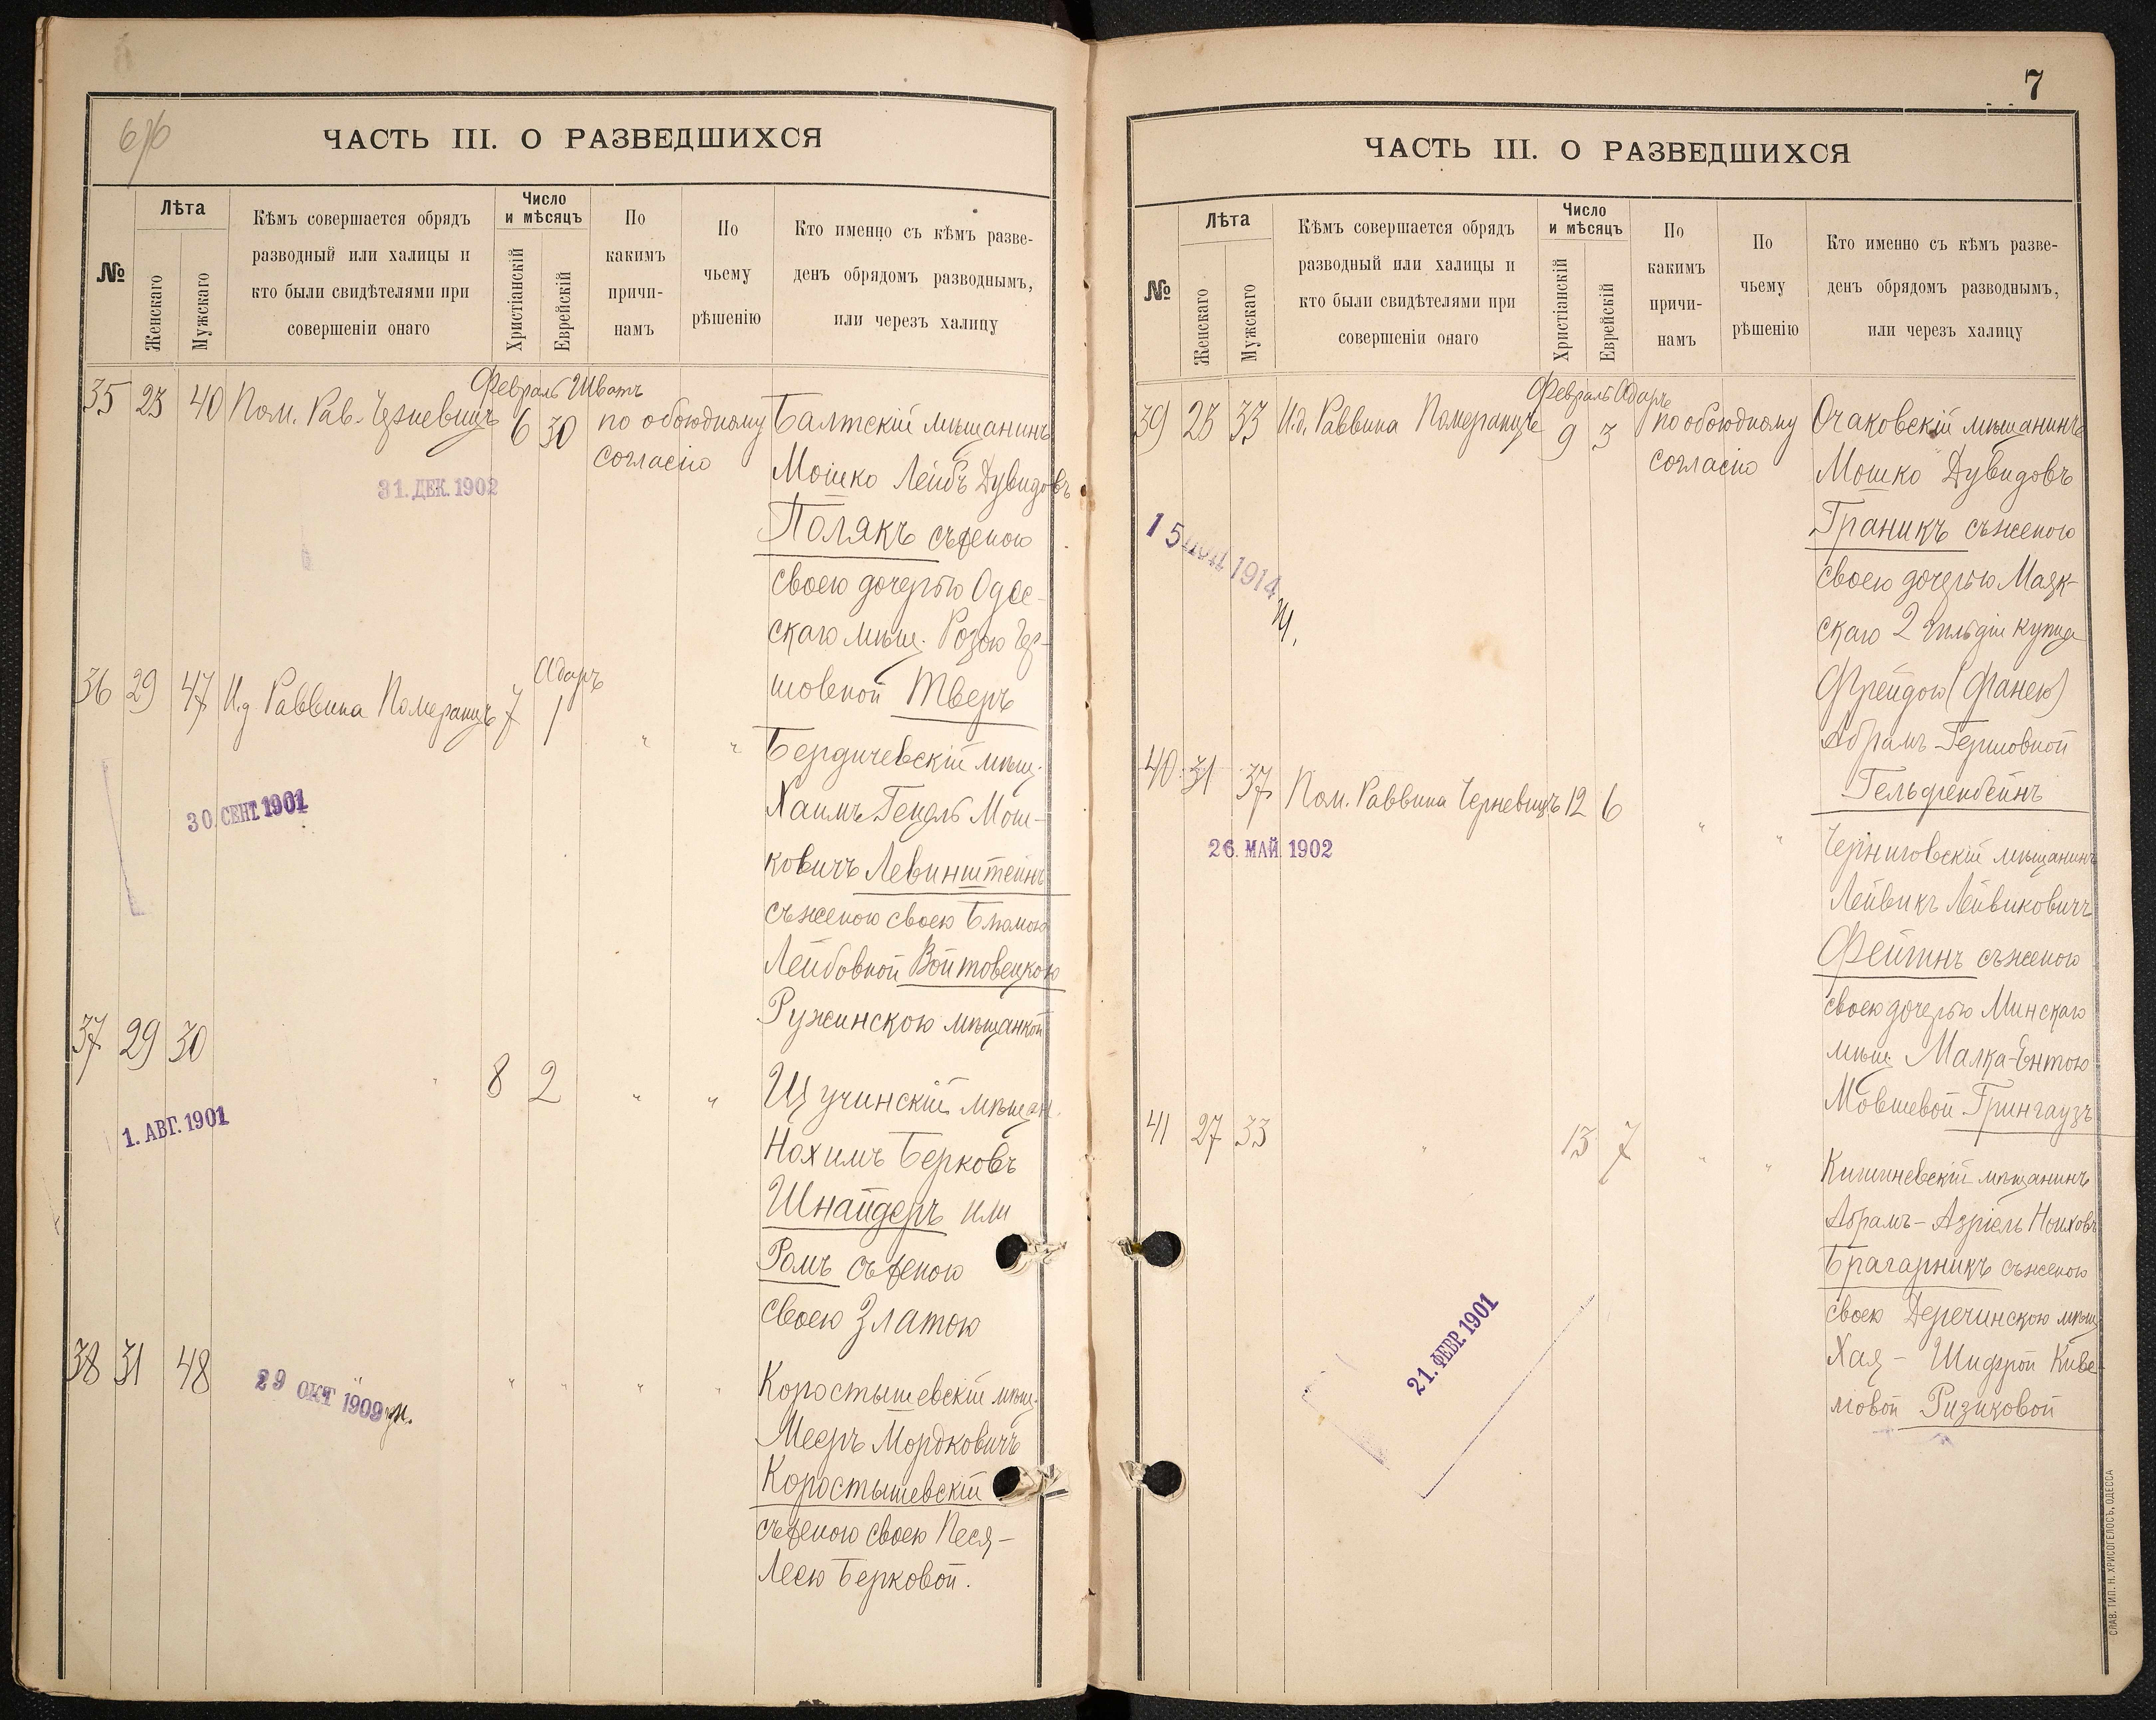 6/6
ЧАСТЬ III. О РАЗВЕДШИХСЯ
№
Лѣта
Женскаго
Мужскаго
Кѣмъ совершается обрядъ
разводный или халицы и
кто были свидѣтелями при
совершеніи онаго
Число
и мѣсяцъ
Христіанскій
Еврейскій
По
какимъ
причи-
намъ
По
чьему
рѣшенію
Кто именно съ кѣмъ разве-
денъ обрядомъ разводнымъ,
или черезъ халицу
Февраль Шватъ
35 23 40 Пом. Рав. Черневицъ 6 30 по обоюдному
согласію
31. ДЕК. 1902
Балтскій мѣщанинъ
Мошко Лейбъ Дувидовъ
Полякъ съ женою
своею дочерью Одес-
скаго мѣщ. Розою Гер-
шовной Тверъ
Адаръ
36 29 47 И.д. Раввина Померанцъ 7 1 " "
30. СЕНТ. 1901
Бердичевскій мѣщ.
Хаимъ Гендль Мош-
ковичъ Левинштейнъ
съ женою своею Блюмою
Лейбовной Войтовецкою
Ружинскою мѣщанкой
37 29 30 " 8 2 " "
1. АВГ. 1901
Щучинскій мѣщан.
Нохимъ Берковъ
Шнайдеръ или
Ромъ съ женою
своею Златою
38 31 48 " " " " "
29 ОКТ 1909
Коростышевскій мѣщ.
Мееръ Мордковичъ
Коростышевскій
съ женою своею Песя-
Леею Берковой.
7
ЧАСТЬ III. О РАЗВЕДШИХСЯ
№
Лѣта
Женскаго
Мужскаго
Кѣмъ совершается обрядъ
разводный или халицы и
кто были свидѣтелями при
совершеніи онаго
Число
и мѣсяцъ
Христіанскій
Еврейскій
По
какимъ
причи-
намъ
По
чьему
рѣшенію
Кто именно съ кѣмъ разве-
денъ обрядомъ разводнымъ,
или черезъ халицу
Февраль Адаръ
39 25 33 И.д. Раввина Померанцъ 9 3 по обоюдному
согласію
15 1914
Очаковскій мѣщанинъ
Мошко Дувидовъ
Граникъ съ женою
своею дочерью Маяк-
скаго 2 гильдіи купца
Фрейдою (Фанею)
Абрамъ-Гершовной
Гельфенбейнъ
40 31 37 Пом. Раввина Черневицъ 12 6 " "
26. МАЙ 1902
Черниговскій мѣщанинъ
Лейвикъ Лейвиковичъ
Фейгинъ съ женою
своею дочерью Минскаго
мѣщ. Малка-Ентою
Мовшевой Грингаузъ
41 27 33 " 13 7 " "
21. ФЕВР. 1901
Кишиневскій мѣщанинъ
Абрамъ-Азріель Ноиховъ
Брагарникъ съ женою
своею Деречинскою мѣщ.
Хая-Шифрой Киве-
ловой Ризиковой
СЛАВ. ТИП. Н. ХРИСОГЕЛОСЪ, ОДЕССА